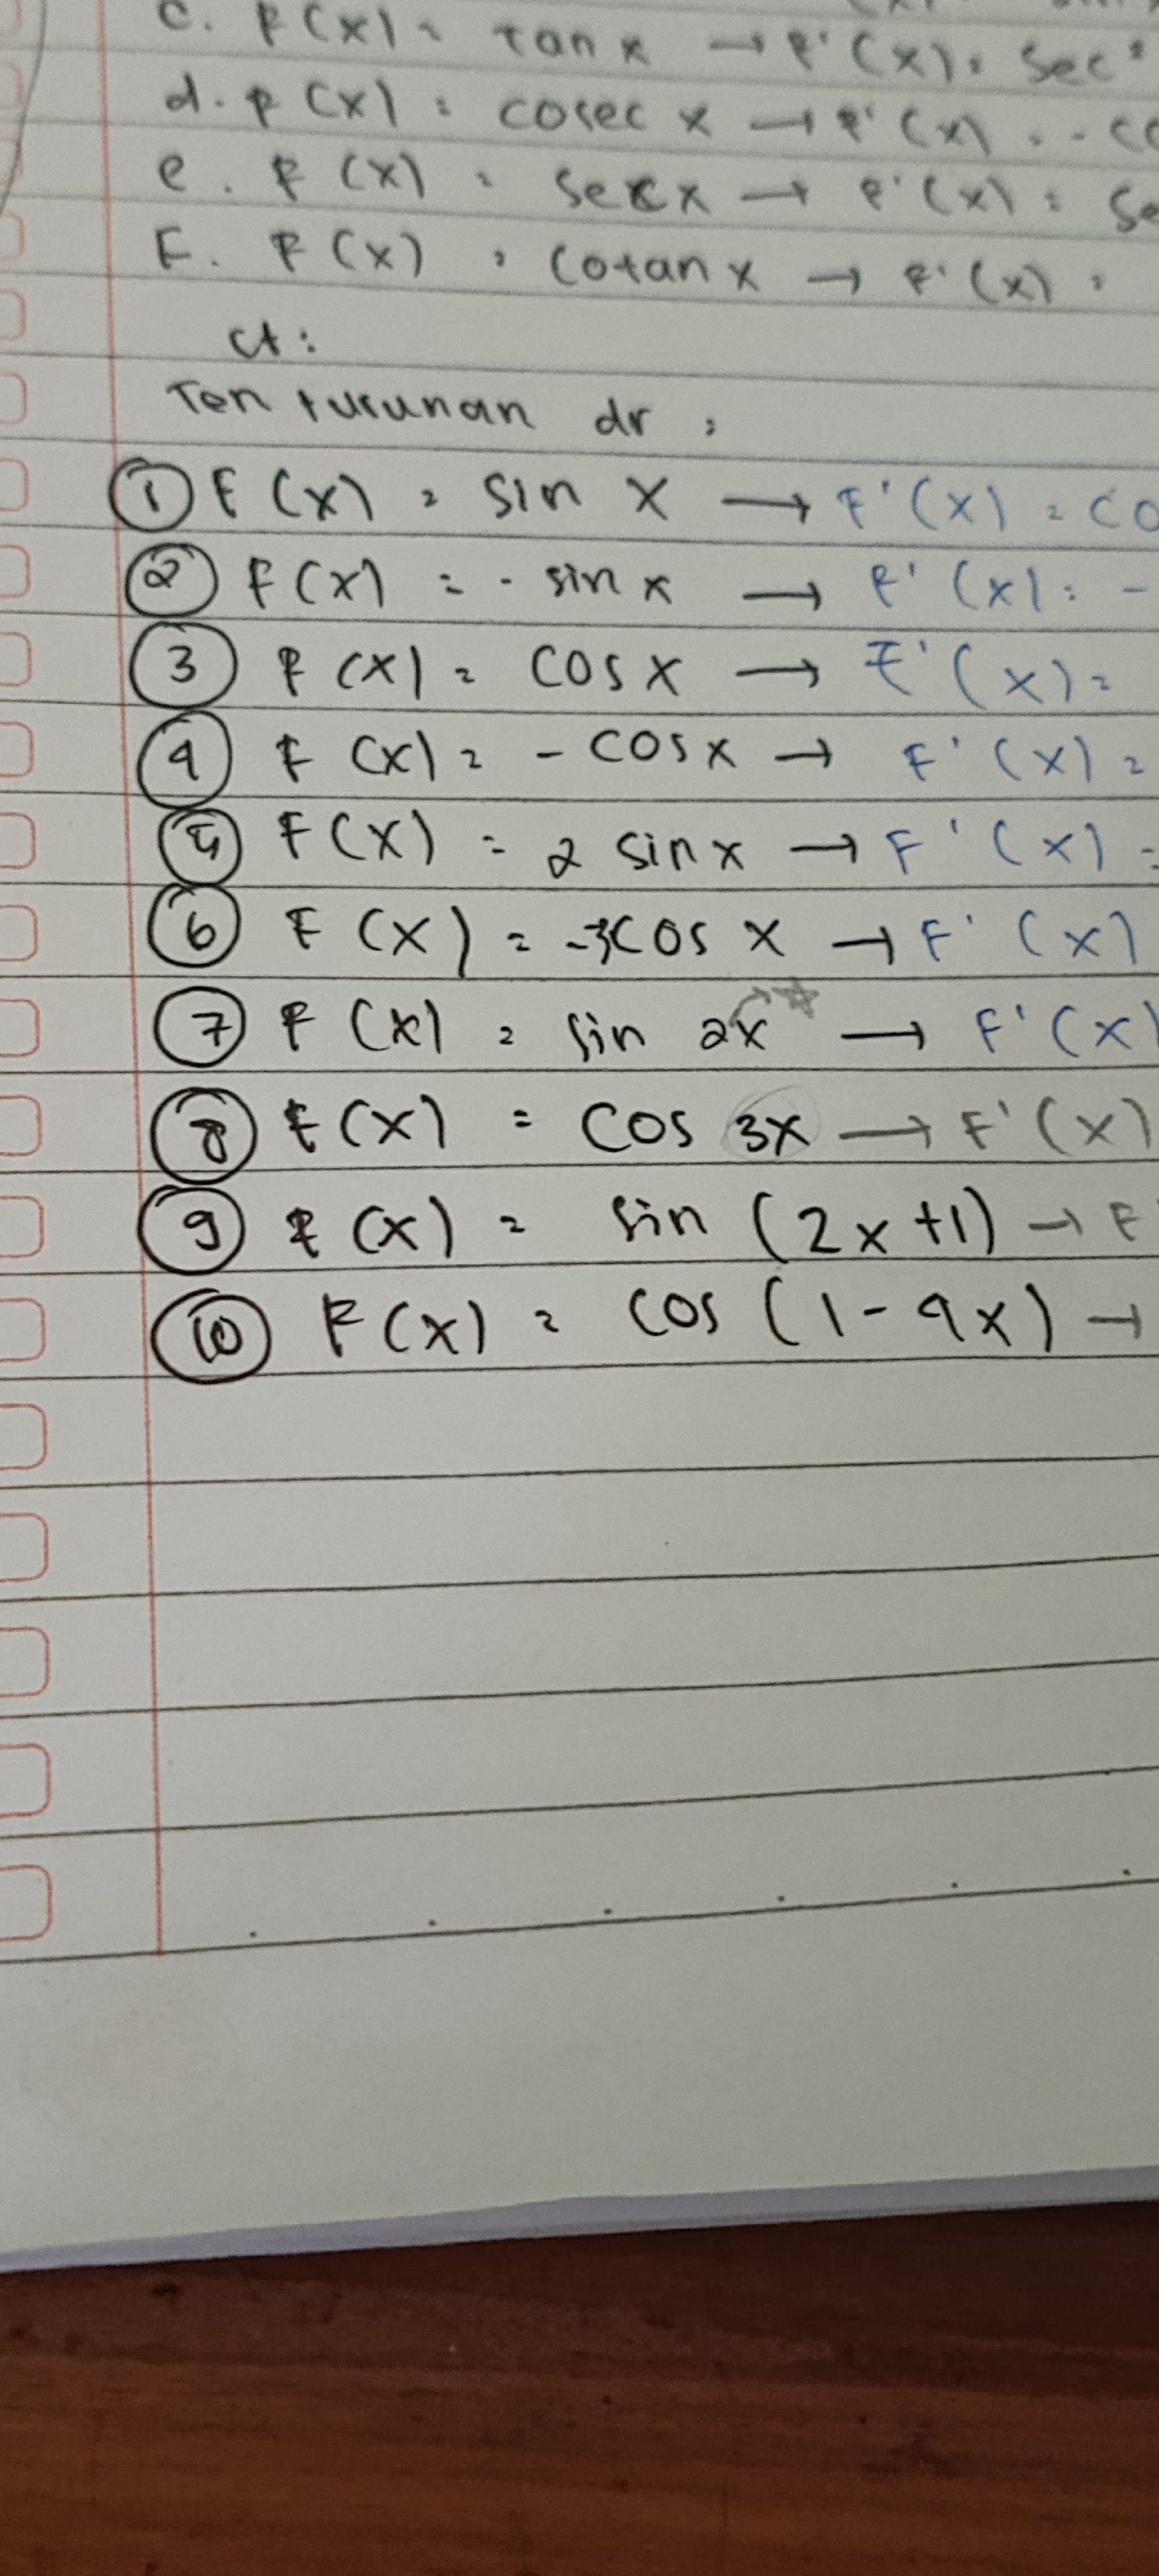 c. f(x) = tan x → f'(x) = sec²
d. f(x) = cosec x → f'(x) = - co
e. f(x) = sec x → f'(x) = se
F. f(x) = cotan x → f'(x) =
ct :
Ten turunan dr :
① F(x) = sin x → F'(x) = co
② F(x) = - sin x → F'(x) = -
③ F(x) = cos x → F'(x) =
④ F(x) = - cos x → F'(x) =
⑤ F(x) = 2 sin x → F'(x) =
⑥ F(x) = -3cos x → F'(x)
⑦ F(x) = sin 2x → F'(x)
⑧ F(x) = cos 3x → F'(x)
⑨ F(x) = sin (2x+1) → F
⑩ F(x) = cos (1-4x) →